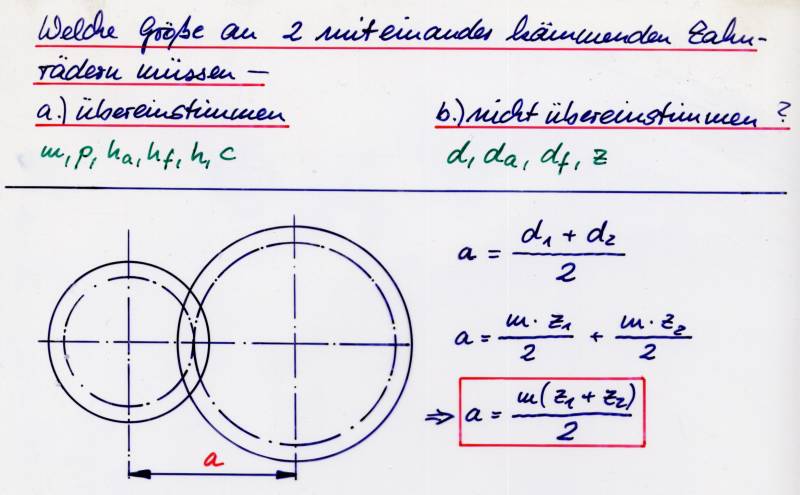 Welche Größe an 2 miteinander kämmenden Zahn-
rädern müssen —
a.) übereinstimmen
b.) nicht übereinstimmen ?
m, p, ha, hf, h, c
d, da, df, z
a = d₁ + d₂ / 2
a = m · z₁ / 2 + m · z₂ / 2
⇒ a = m (z₁ + z₂) / 2
a